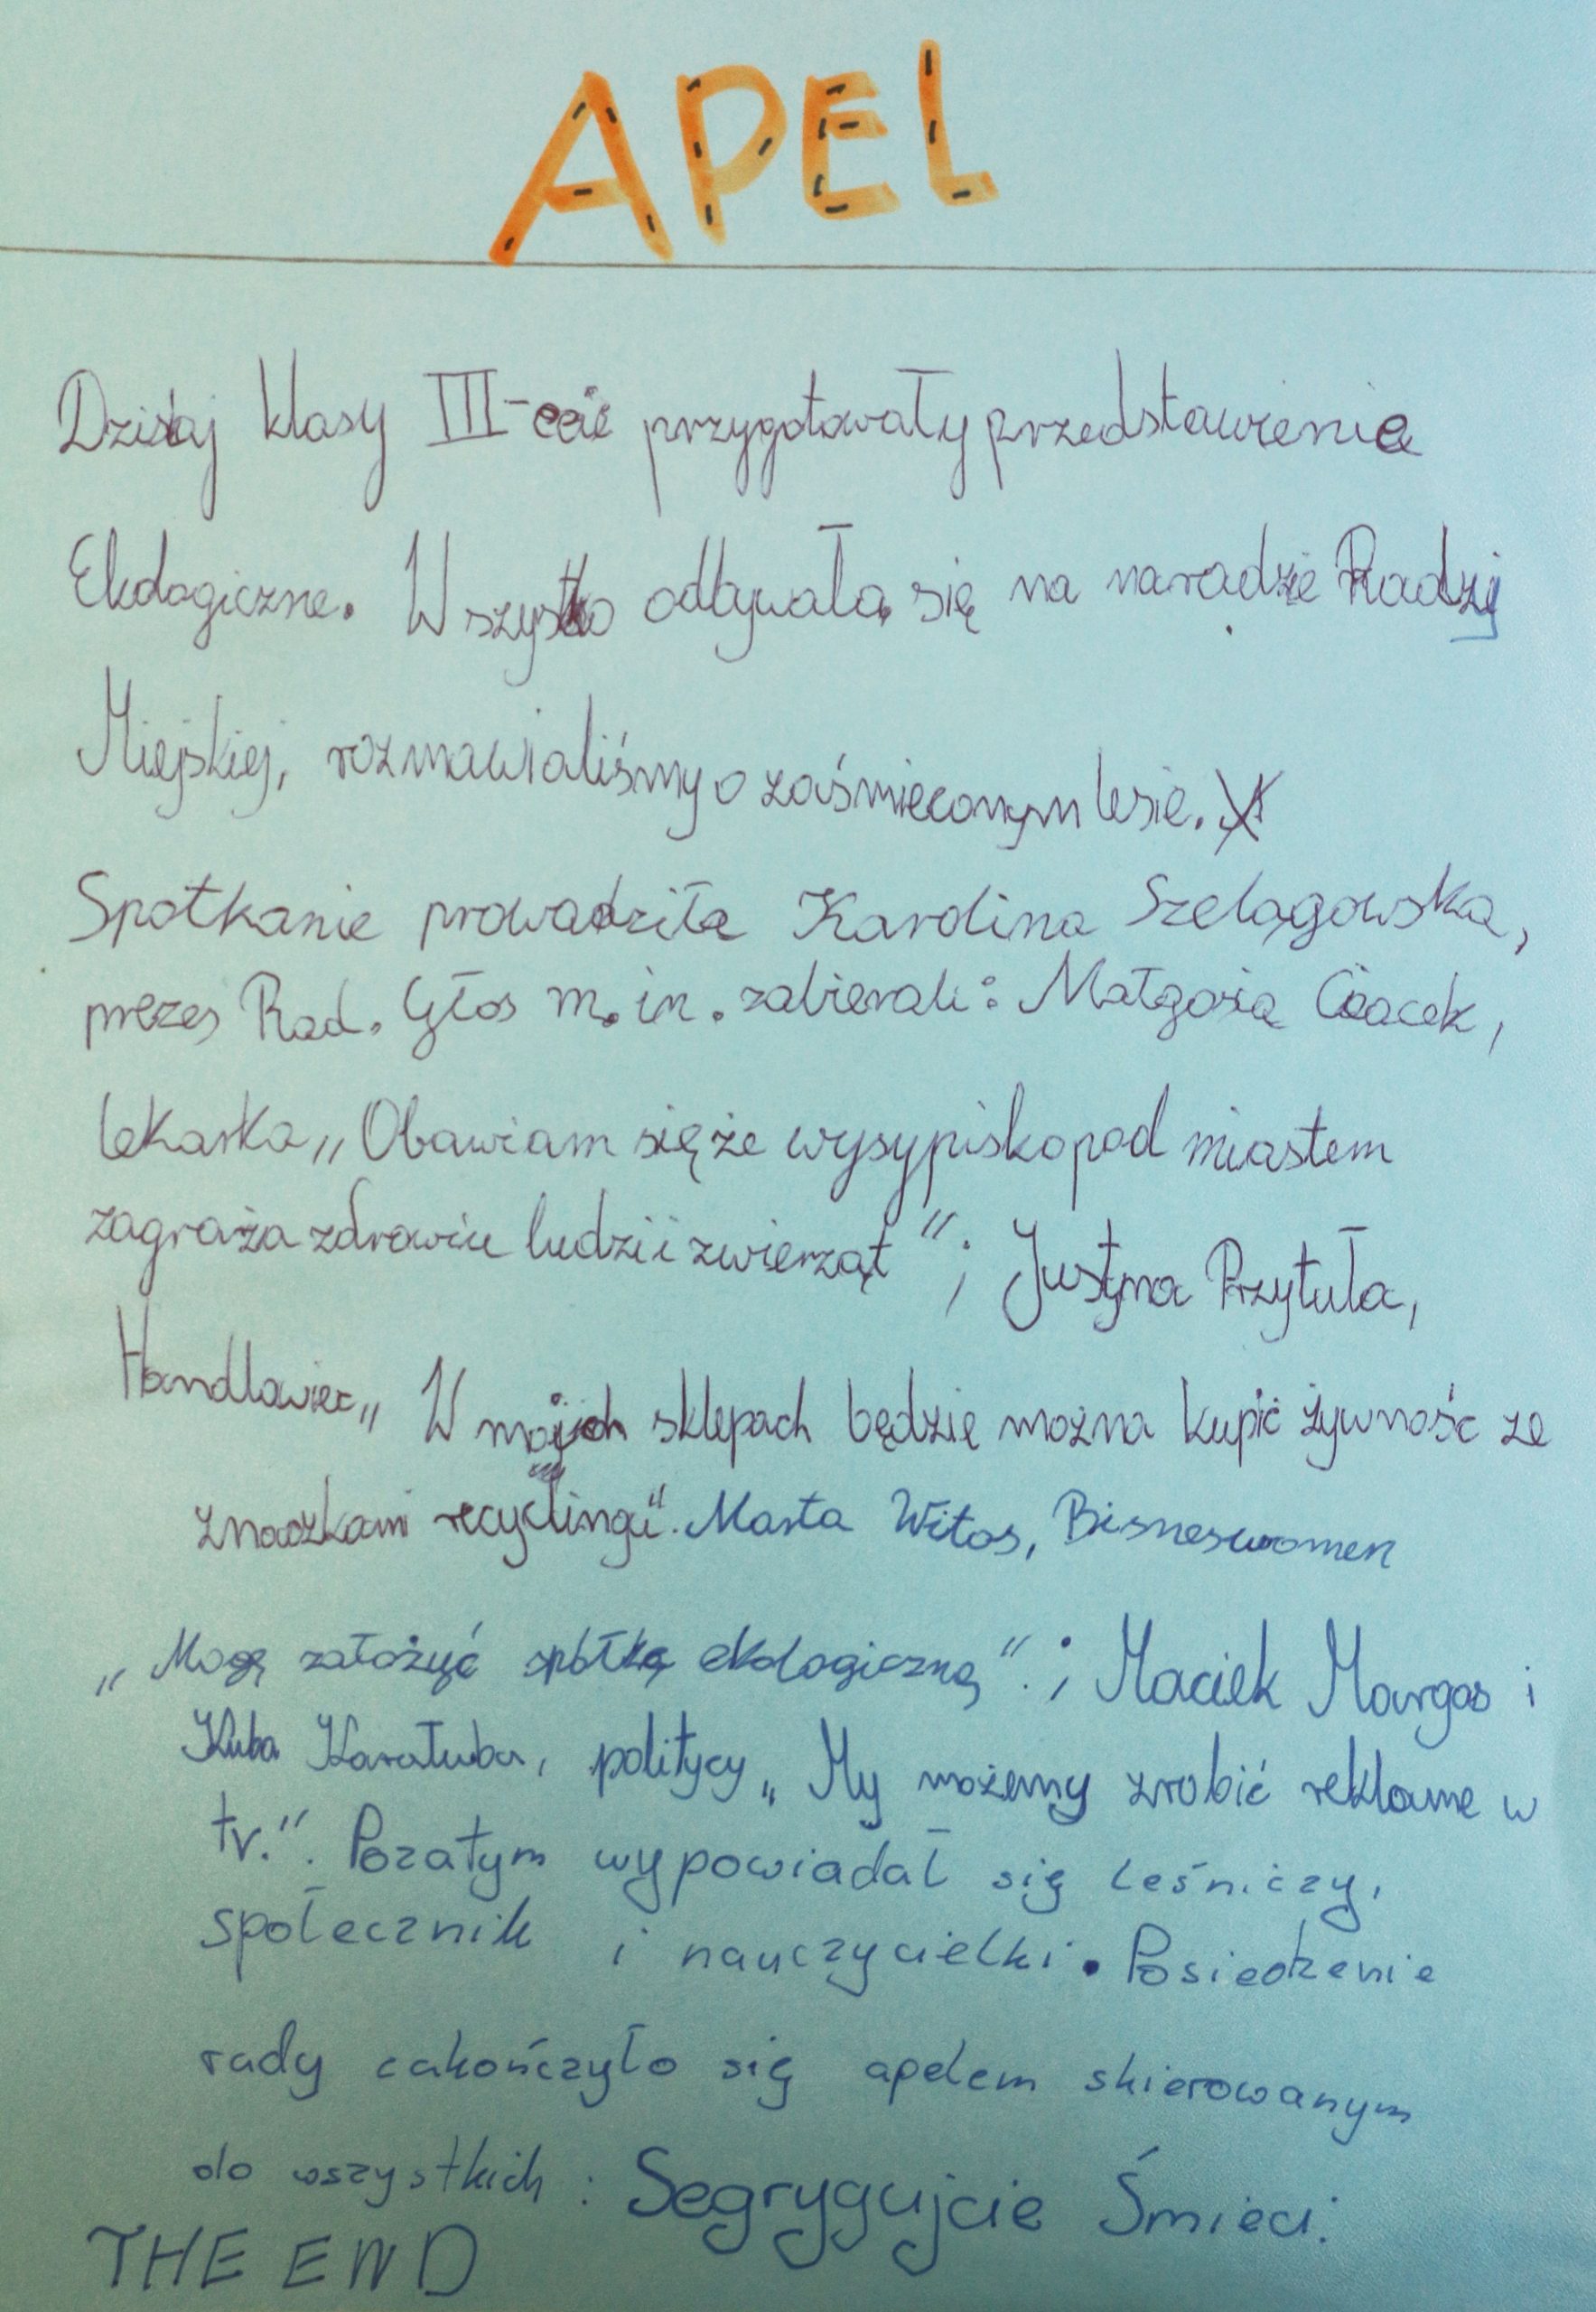 APEL
Dzisiaj klasy III-ecie przygotowały przedstawienie
Ekologiczne. Wszystko odbywała się na naradzie Radzy
Miejskiej, rozmawialiśmy o zaśmieconym lesie.
Spotkanie prowadziła Karolina Szelągowska,
prezes Rad. Głos m. in. zabierali: Małgosia Cacek,
lekarka „Obawiam się że wysypisko pod miastem
zagraża zdrowiu ludzi i zwierząt"; Justyna Przytuła,
Handlowiec „W mojich sklepach będzie można kupić żywność ze
znaczkami recyclingu". Marta Witos, Bisneswomen
„Mogę założyć spółkę ekologiczną".; Maciek Margos i
Kuba Karatuba, politycy „My możemy zrobić reklame w
tv.". Pozatym wypowiadał się leśniczy,
społecznik i nauczycielki. Posiedzenie
rady zakończyło się apelem skierowanym
do wszystkich: Segrygujcie Śmieci.
THE END